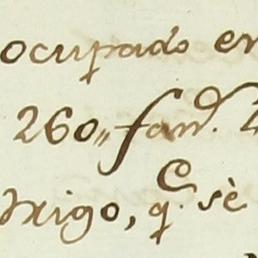 ocupado en
260,, fan.
trigo, q. sè